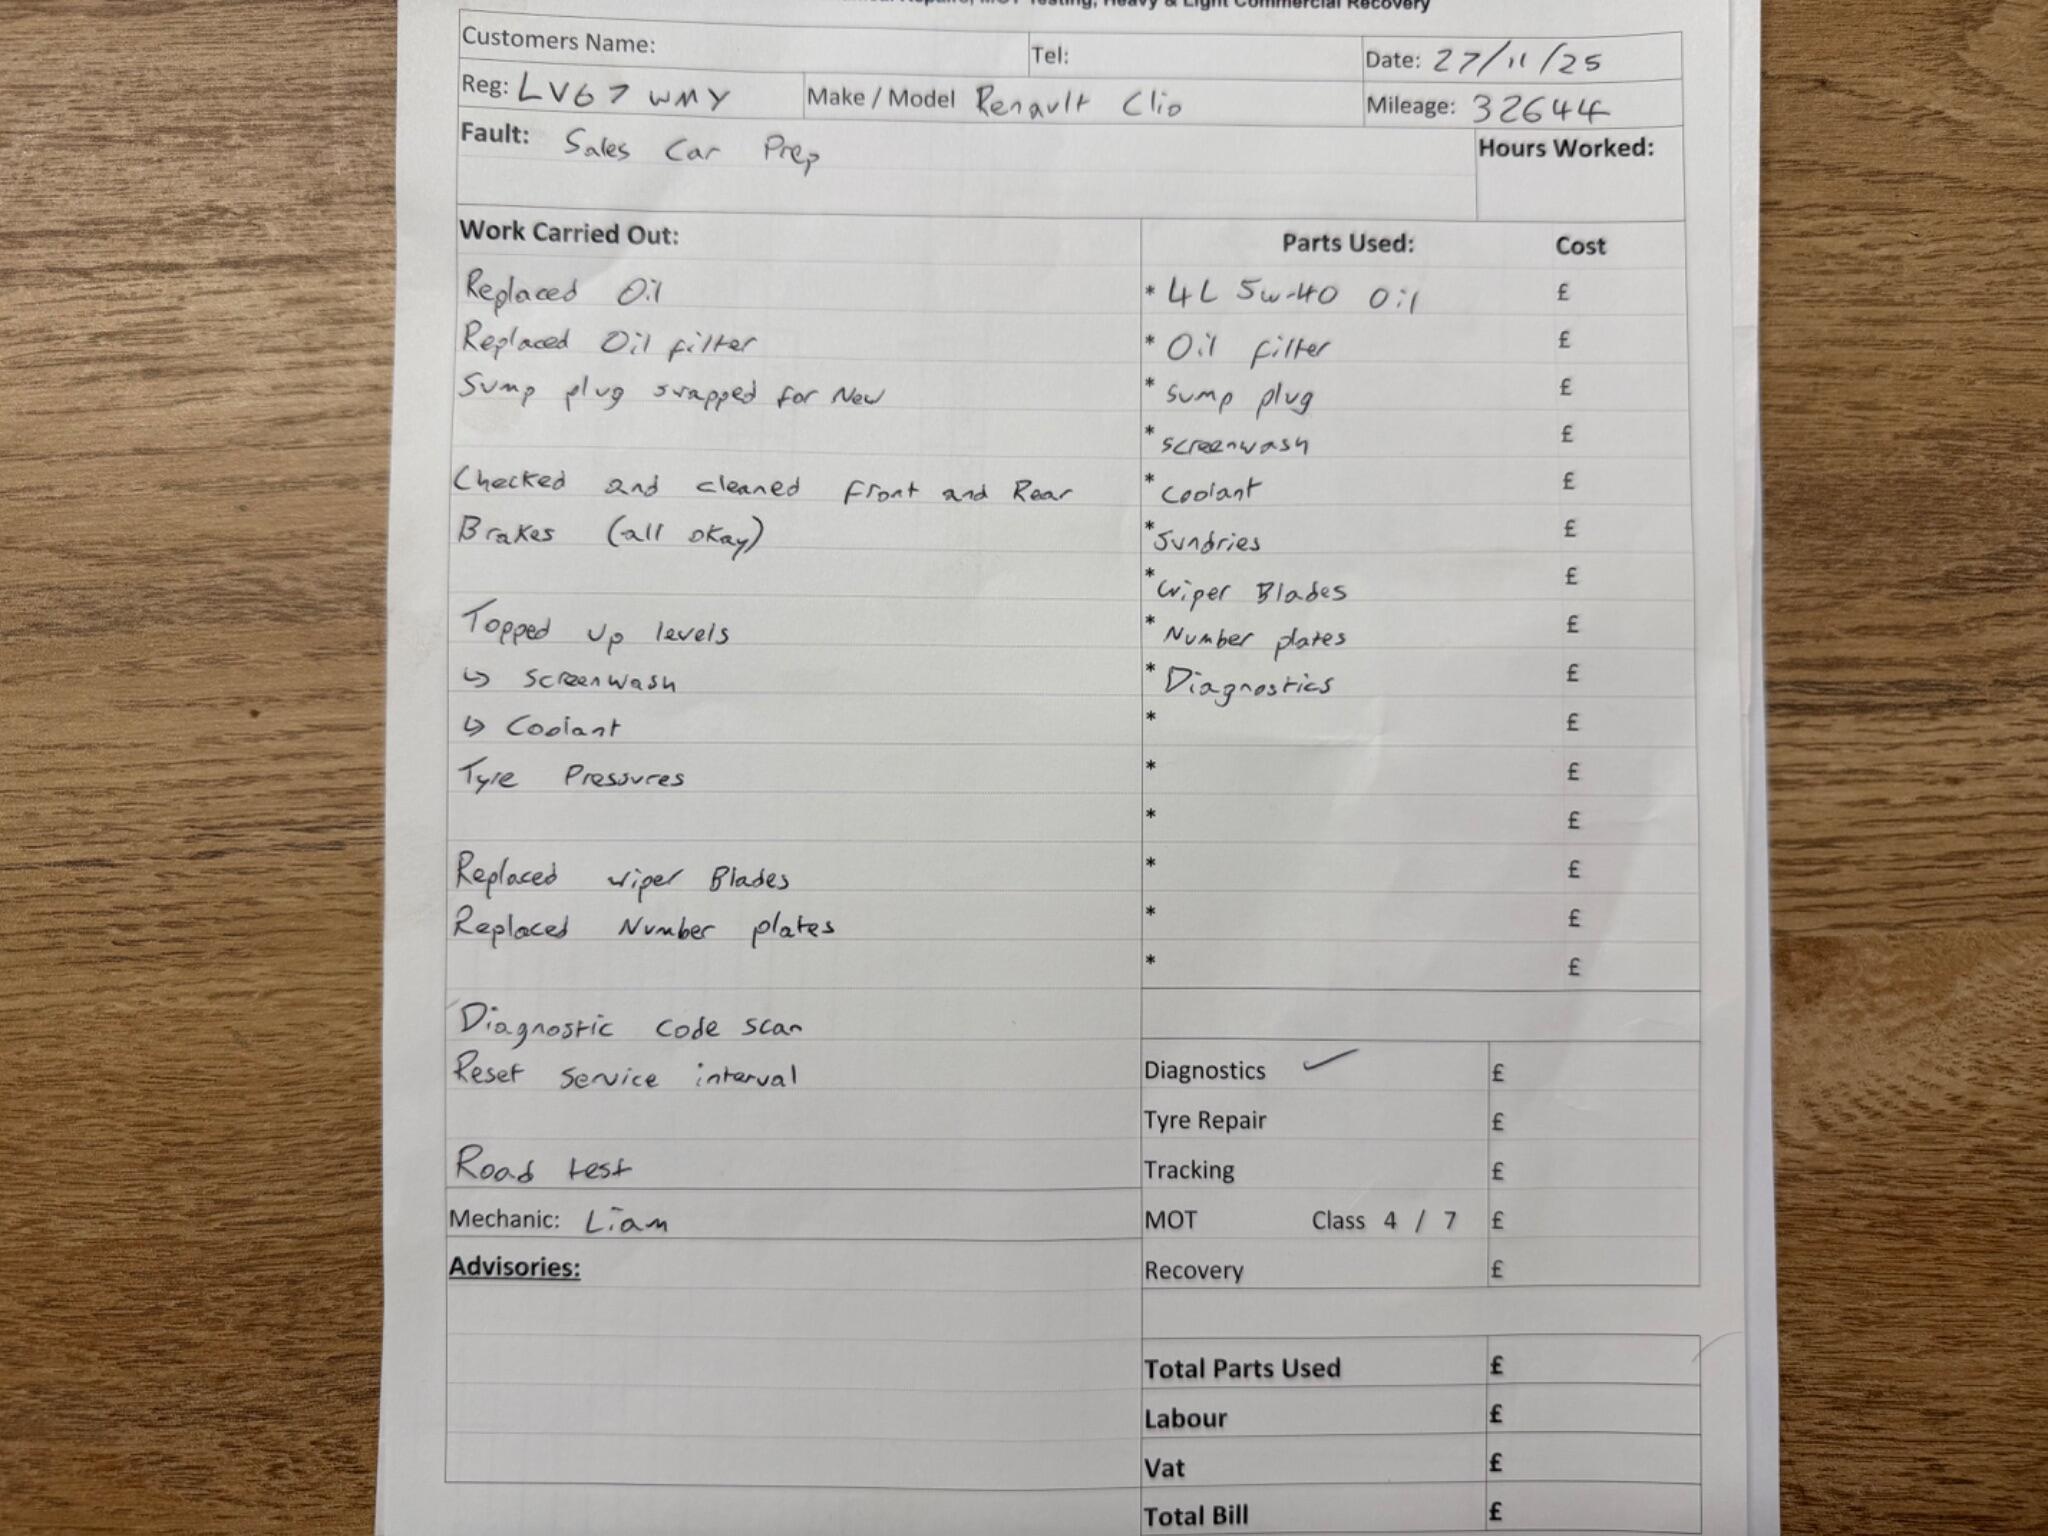 Repairs, MOT Testing, Heavy & Light Commercial Recovery
Customers Name:
Tel:
Date: 27/11/25
Reg: LV67 WMY
Make / Model Renault Clio
Mileage: 32644
Fault: Sales Car Prep
Hours Worked:
Work Carried Out:
Replaced Oil
Replaced Oil filter
Sump plug swapped for New
Checked and cleaned Front and Rear
Brakes (all okay)
Topped up levels
↳ Screenwash
↳ Coolant
Tyre Pressures
Replaced wiper Blades
Replaced Number plates
Diagnostic code scan
Reset service interval
Road test
Mechanic: Liam
Advisories:
Parts Used: Cost
* 4L 5w-40 Oil £
* Oil filter £
* Sump plug £
* screenwash £
* Coolant £
* Sundries £
* Wiper Blades £
* Number plates £
* Diagnostics £
* £
* £
* £
* £
* £
* £
Diagnostics ✓ £
Tyre Repair £
Tracking £
MOT Class 4 / 7 £
Recovery £
Total Parts Used £
Labour £
Vat £
Total Bill £